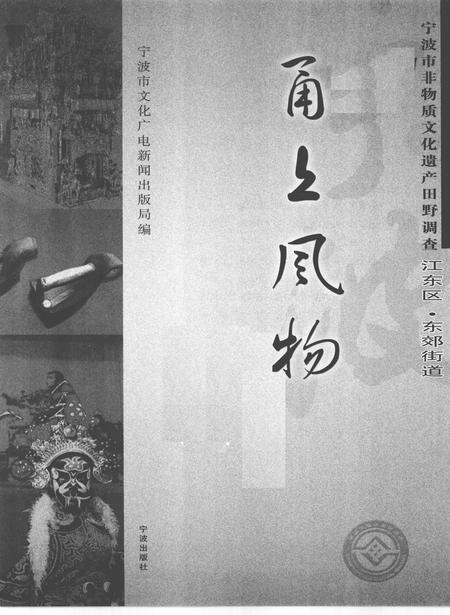 宁波市非物质文化遗产田野调查
江东区·东郊街道
甬上风物
宁波市文化广电新闻出版局编
宁波出版社